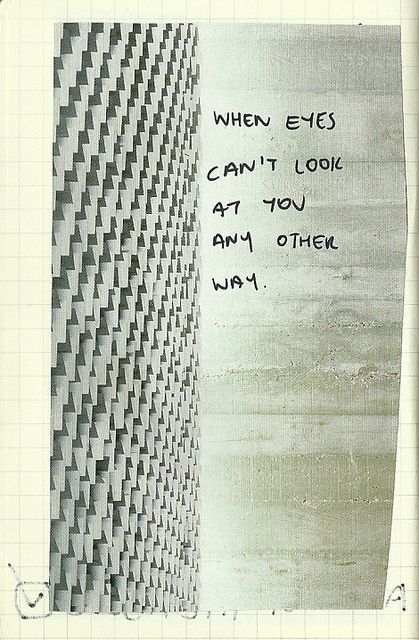 WHEN EYES
CAN'T LOOK
AT YOU
ANY OTHER
WAY.